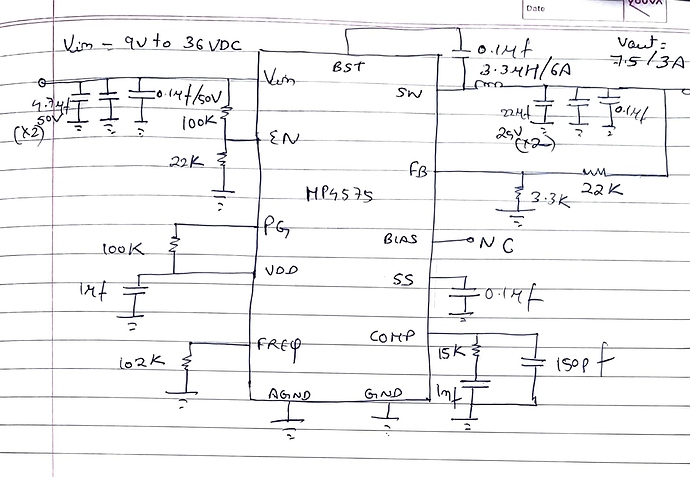 Date
YOUVA
Vin = 9V to 36VDC
Vout =
7.5/3A
BST
0.1µf
3.3µH/6A
Vin
SW
4.7µf
50V
(x2)
0.1µf/50V
100K
22µf
25V
(x2)
0.1µf
EN
22K
FB
22K
3.3K
MP4575
PG
100K
BIAS
NC
VDD
SS
1µf
0.1µf
FREQ
COMP
102K
15K
150pf
1nf
AGND
GND